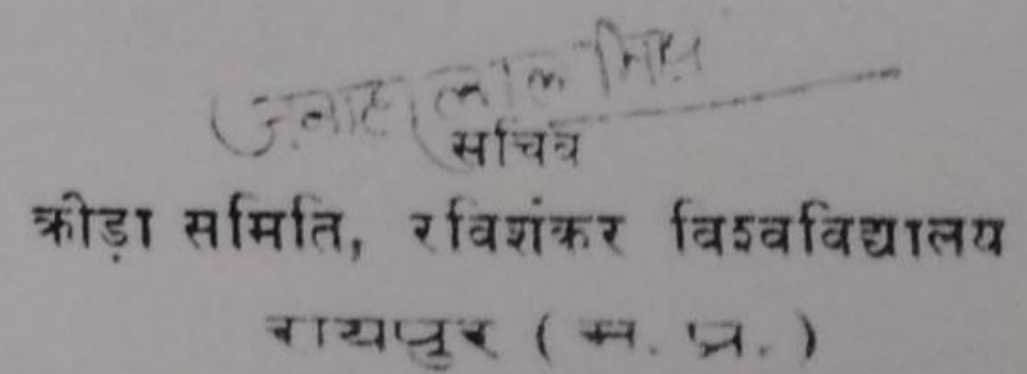 लाल मिश्र
सचिव
क्रीड़ा समिति, रविशंकर विश्वविद्यालय
रायपुर ( म. प्र. )